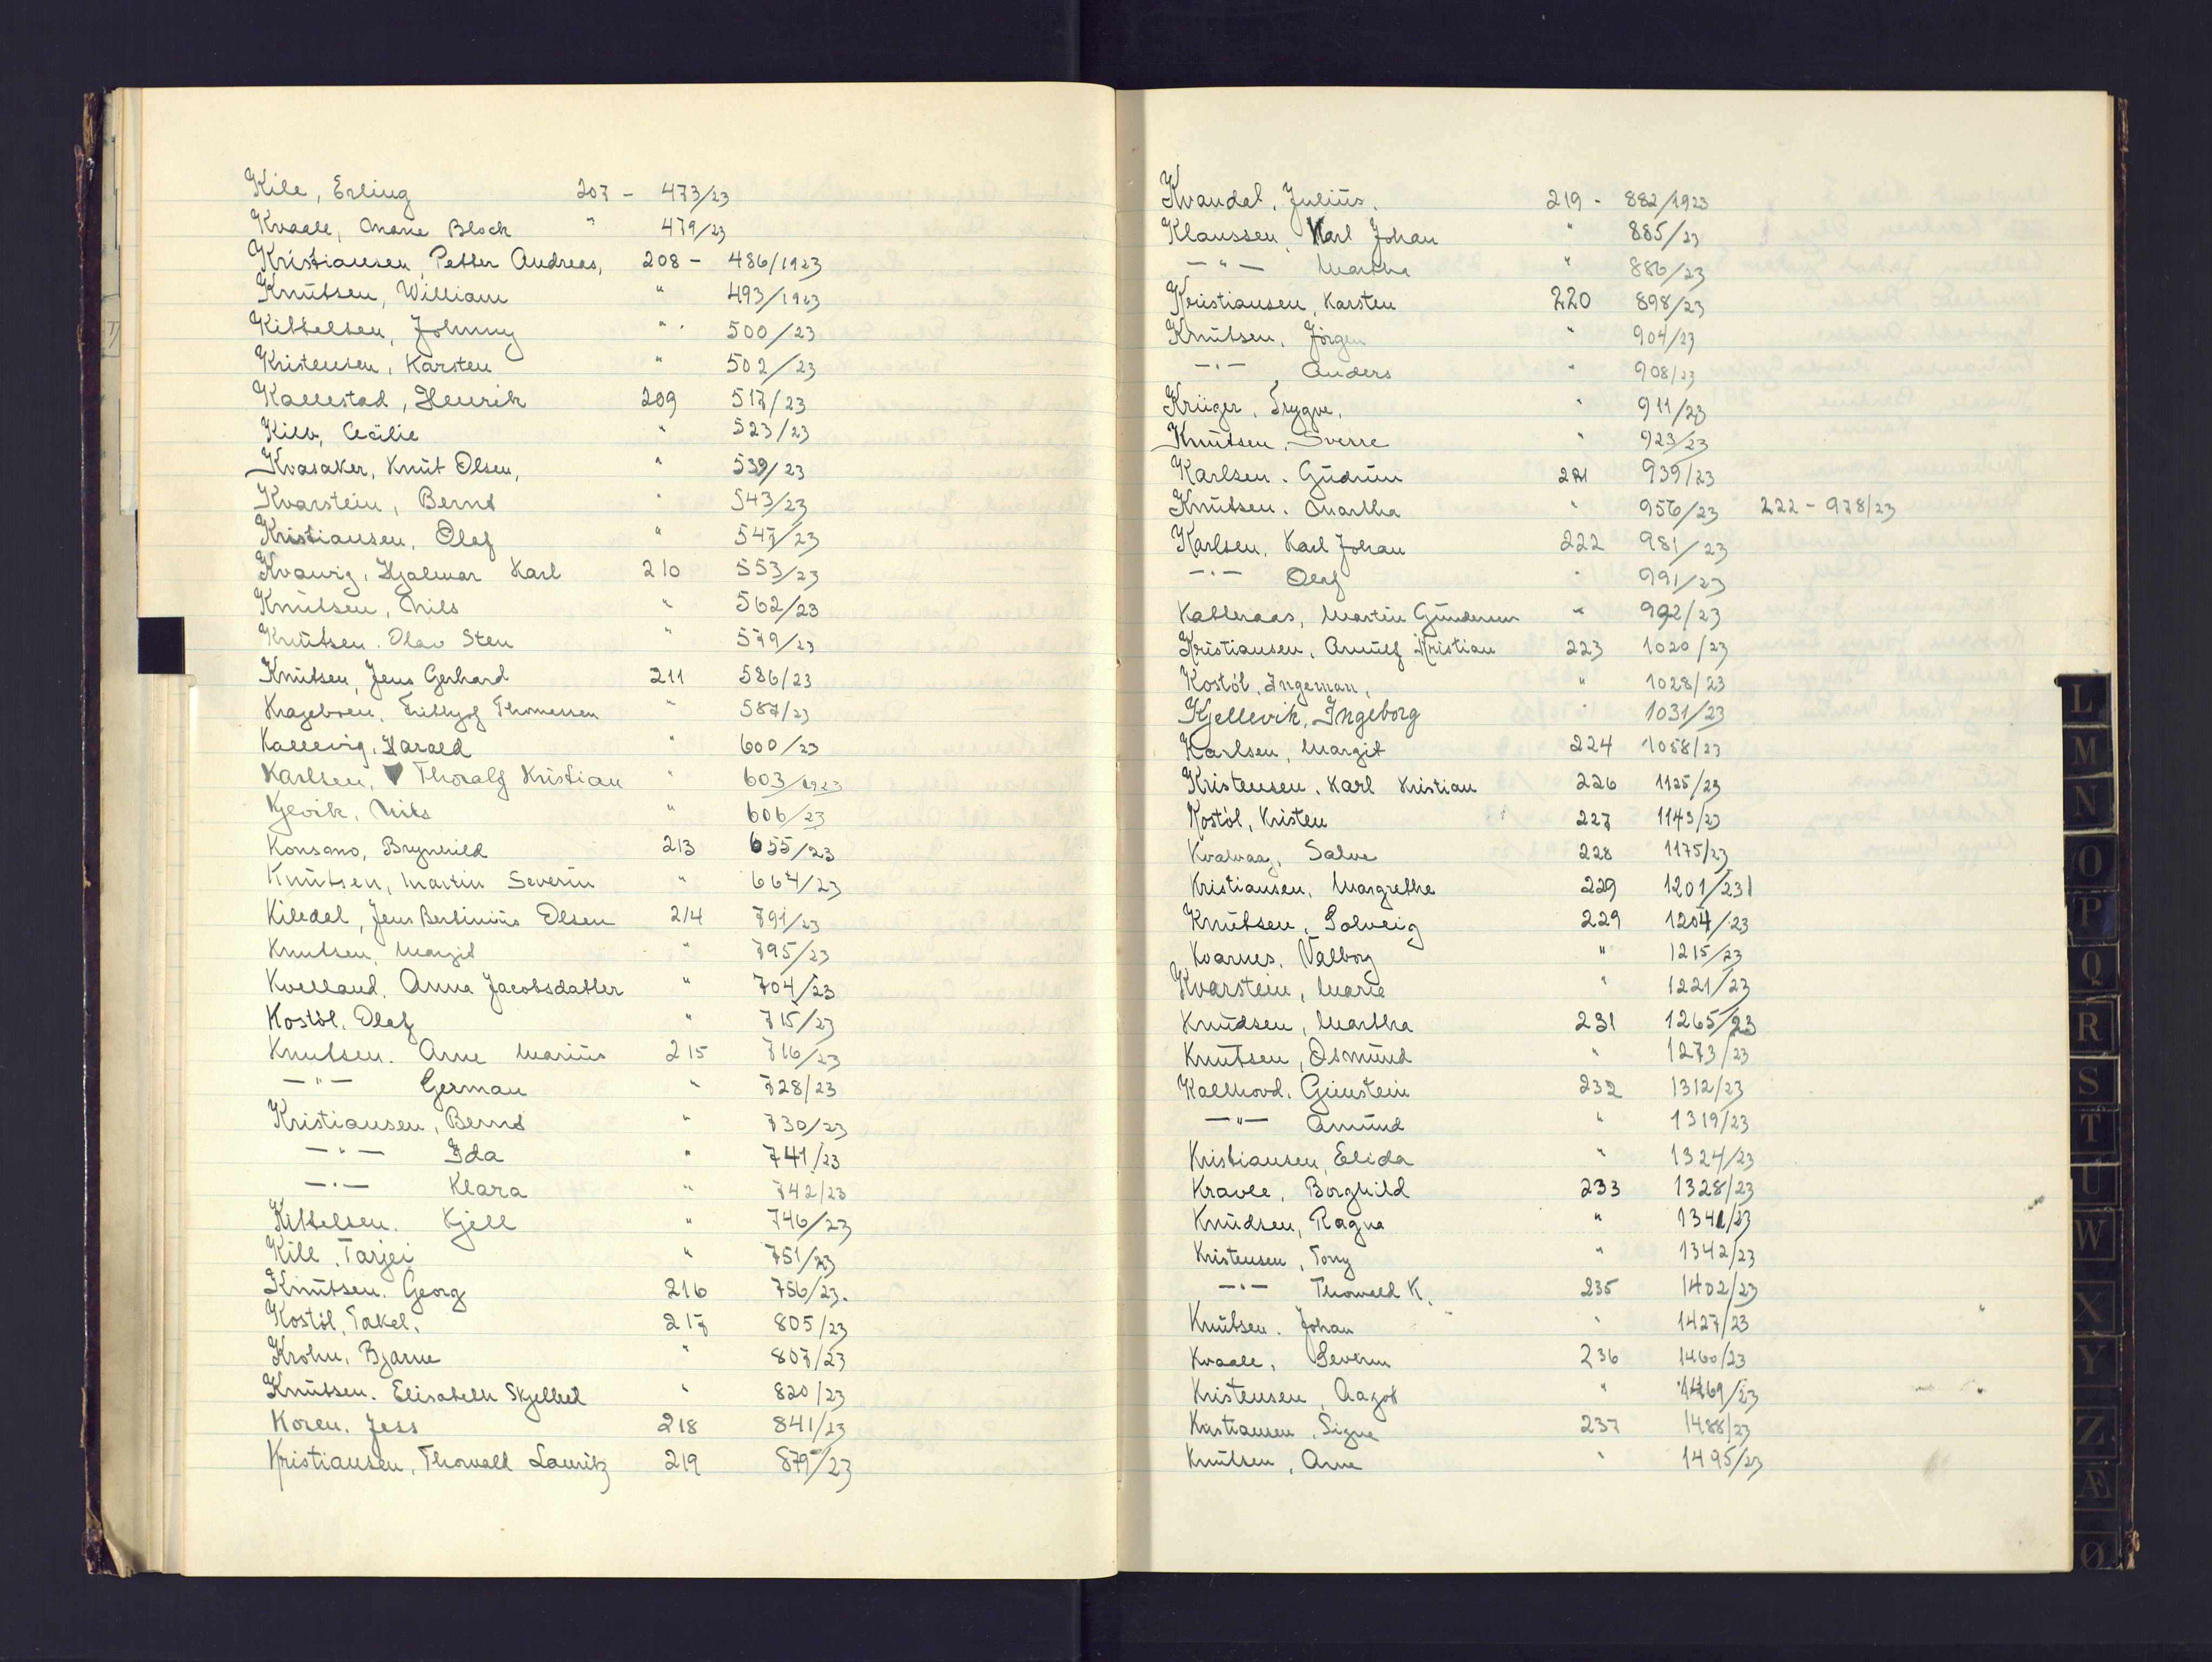 Kile, Erling 207 - 473/23
Kvaale, Marie Bloch " 479/23
Kristiansen, Petter Andreas, 208 - 486/1923
Knutsen, William " 493/1923
Kittelsen, Johnny " 500/23
Kristensen, Karsten " 502/23
Kallestad, Henrik 209 517/23
Kilb, Cecilie " 523/23
Kvasaker, Knut Olsen, " 539/23
Kvarstein, Bernt " 543/23
Kristiansen, Olaf " 547/23
Kvavig, Hjalmar Karl 210 553/23
Knutsen, Nils " 562/23
Knutsen. Olav Sten " 579/23
Knutsen, Jens Gerhard 211 586/23
Krageboen, Frithjof Thomessen " 587/23
Kallevig, Harald " 600/23
Karlsen, Thoralf Kristian " 603/1923
Kjevik, Nils " 606/23
Konsmo, Brynhild 213 655/23
Knutsen, Martin Severin " 664/23
Kiledal, Jens Bertinius Olsen 214 791/23
Knutsen, Margit " 795/23
Kvelland, Anna Jacobsdatter " 704/23
Kostöl, Olaf " 715/23
Knutsen. Arne Marius 215 716/23
—"— German " 728/23
Kristiansen, Bernt " 730/23
—"— Ida " 741/23
—"— Klara " 742/23
Kittelsen. Kjell " 746/23
Kile, Tarjei " 751/23
Knutsen. Georg 216 756/23.
Kostöl, Takel. 217 805/23
Krohn, Bjarne " 807/23
Knutsen. Elisabeth Skjelbred " 820/23
Koren, Jess 218 841/23
Kristiansen, Thorvald Lauritz 219 879/23
Kvandal, Julius. 219 - 882/1923
Klaussen, Karl Johan " 885/23
—"— Martha " 886/23
Kristiansen, Karsten 220 898/23
Knutsen, Jörgen " 904/23
—"— Anders " 908/23
Krüger, Trygve, " 911/23
Knutsen, Sverre " 923/23
Karlsen. Gudrun 221 939/23
Knutsen. Martha " 956/23 222 - 978/23
Karlsen, Karl Johan 222 981/23
—"— Olaf " 991/23
Katteraas, Martin Gundersen " 992/23
Kristiansen, Arnulf Kristian 223 1020/23
Kostöl, Ingeman, " 1028/23
Kjellevik, Ingeborg " 1031/23
Karlsen, Margit 224 1058/23
Kristensen, Karl Kristian 226 1125/23
Kostöl, Kristen 227 1143/23
Kvalvaag, Salve 228 1175/23
Kristiansen, Margrethe 229 1201/23
Knutsen, Solveig 229 1204/23
Kvarnes, Valborg " 1215/23
Kvarstein, Marie " 1221/23
Knudsen, Martha 231 1265/23
Knutsen, Osmund " 1273/23
Kallhovd, Gunstein 232 1312/23
—"— Amund " 1319/23
Kristiansen, Elida " 1324/23
Kravle, Borghild 233 1328/23
Knudsen, Ragna " 1341/23
Kristensen, Tony " 1342/23
—"— Thorvald K. 235 1402/23
Knutsen. Johan " 1427/23
Kvaale, Severin 236 1460/23
Kristensen, Aagot " 1469/23
Kristiansen, Signe 237 1488/23
Knutsen, Arne " 1495/23
L
M
N
O
P
Q
R
S
T
U
W
X
Y
Z
Æ
Ø